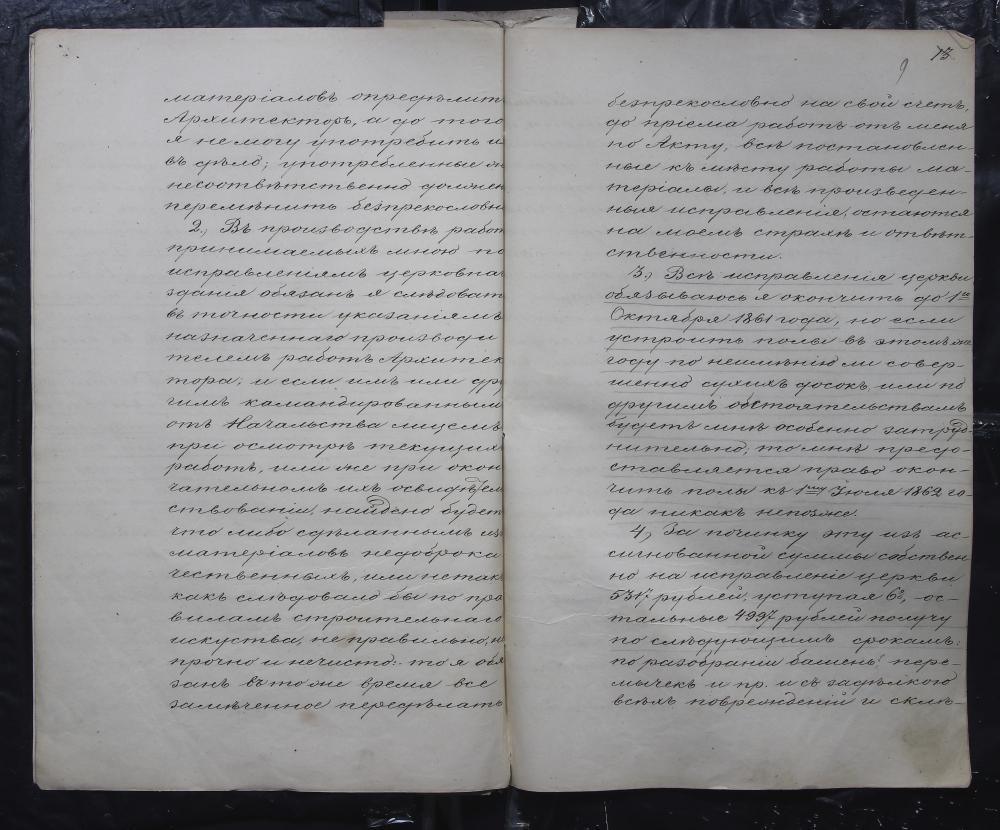 матеріаловъ опредѣлит
Архитекторъ, а до того
я не могу употребить и
въ дѣло; употребленные
несоотвѣтственно должен
перемѣнить безпрекословн
2., Въ производствѣ работ
принимаемыхъ мною по
исправленіямъ церковна
зданія обязанъ я слѣдоват
въ точности указаніямъ
назначеннаго производи
телемъ работъ Архитек
тора; и если имъ или дру
гимъ командированнымъ
отъ Начальства лицемъ
при осмотрѣ текущихъ
работъ, или же при окон
чательномъ ихъ освидѣтел
ствованіи, найдено будет
что либо сдѣланнымъ из
матеріаловъ недоброка
чественныхъ, или нетак
какъ слѣдовало бы по пра
виламъ строительнаго
искуства, не правильно, н
прочно и нечисто: то я обя
занъ въ тоже время все
замѣченное передѣлать
13
9
безпрекословно на свой счетъ,
до пріема работъ отъ меня
по Акту, всѣ постановлен-
ные къ мѣсту работы ма-
теріалы, и всѣ произведен-
ныя исправленія, остаются
на моемъ страхѣ и отвѣт-
ственности.
3., Всѣ исправленія церкви
обязываюсь я окончить до 1го
Октября 1861 года, но если
устроить полы въ этомъ же
году по неимѣнію ли совер-
шенно сухихъ досокъ, или по
другимъ обстоятельствамъ
будетъ мнѣ особенно затруд-
нительно, то мнѣ предо-
ставляется право окон-
чить полы къ 1му Іюля 1862 го-
да никакъ непозже.
4, За починку эту изъ ас-
сигнованной суммы собствен
но на исправленіе церкви
5317 рублей, уступая 6%, ос-
тальные 4997 рублей получу
по слѣдующимъ срокамъ:
по разобраніи башень, пере-
мычекъ и пр. и съ задѣлкою
всѣхъ поврежденій и склѣ-